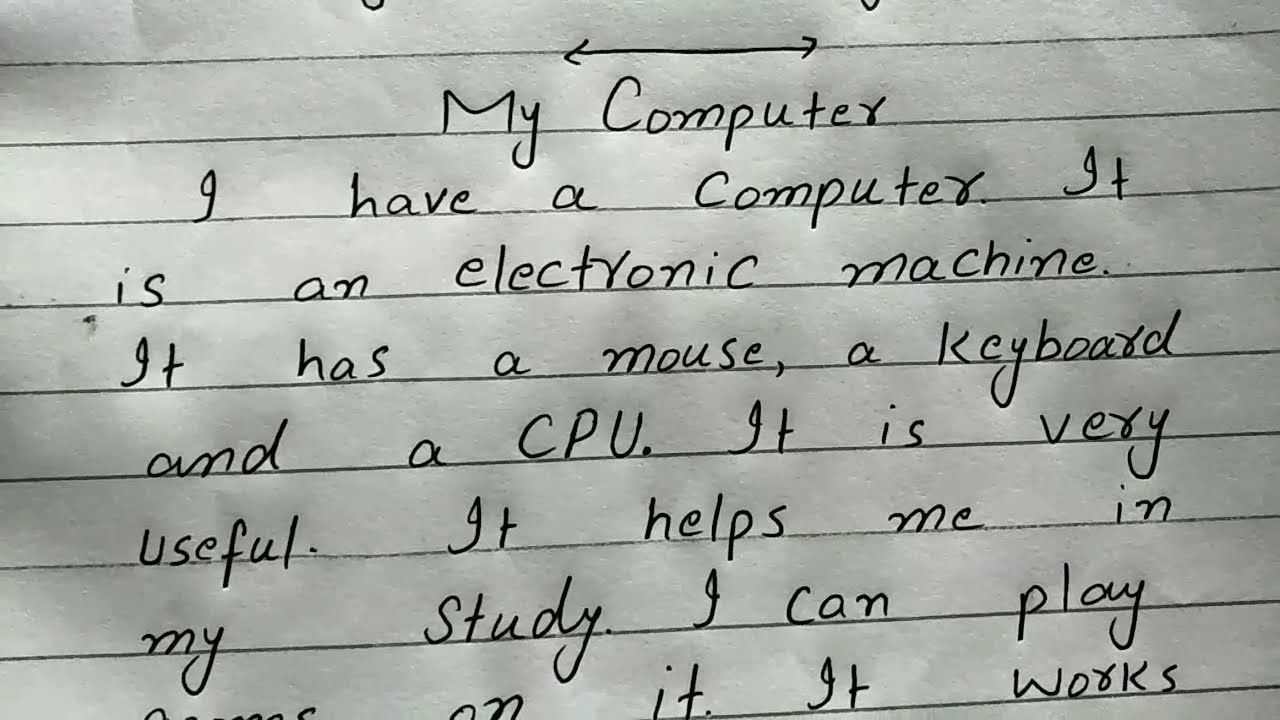 My Computer
I have a Computer. It
is an electronic machine.
It has a mouse, a keyboard
and a CPU. It is very
useful. It helps me in
my Study. I can play
games on it. It works